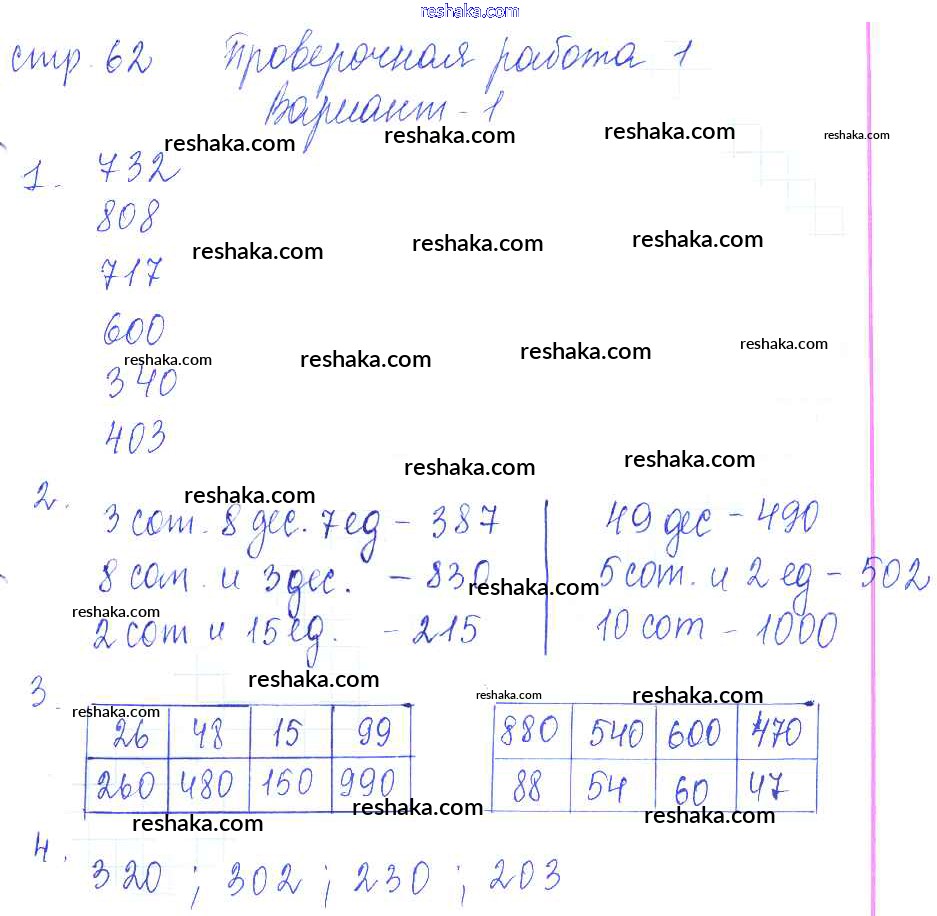 reshaka.com
стр. 62 Проверочная работа 1
Вариант - 1
reshaka.com reshaka.com reshaka.com reshaka.com
1. 732
808
reshaka.com reshaka.com reshaka.com
717
600
reshaka.com reshaka.com reshaka.com reshaka.com
340
403
reshaka.com reshaka.com
2. reshaka.com
3 сот. 8 дес. 7 ед - 387 49 дес - 490
8 сот. и 3 дес. - 830 5 сот. и 2 ед - 502
reshaka.com reshaka.com
2 сот и 15 ед. - 215 10 сот - 1000
reshaka.com reshaka.com reshaka.com
3. reshaka.com
26 48 15 99 880 540 600 470
260 480 150 990 88 54 60 47
reshaka.com reshaka.com reshaka.com
4. 320 ; 302 ; 230 ; 203